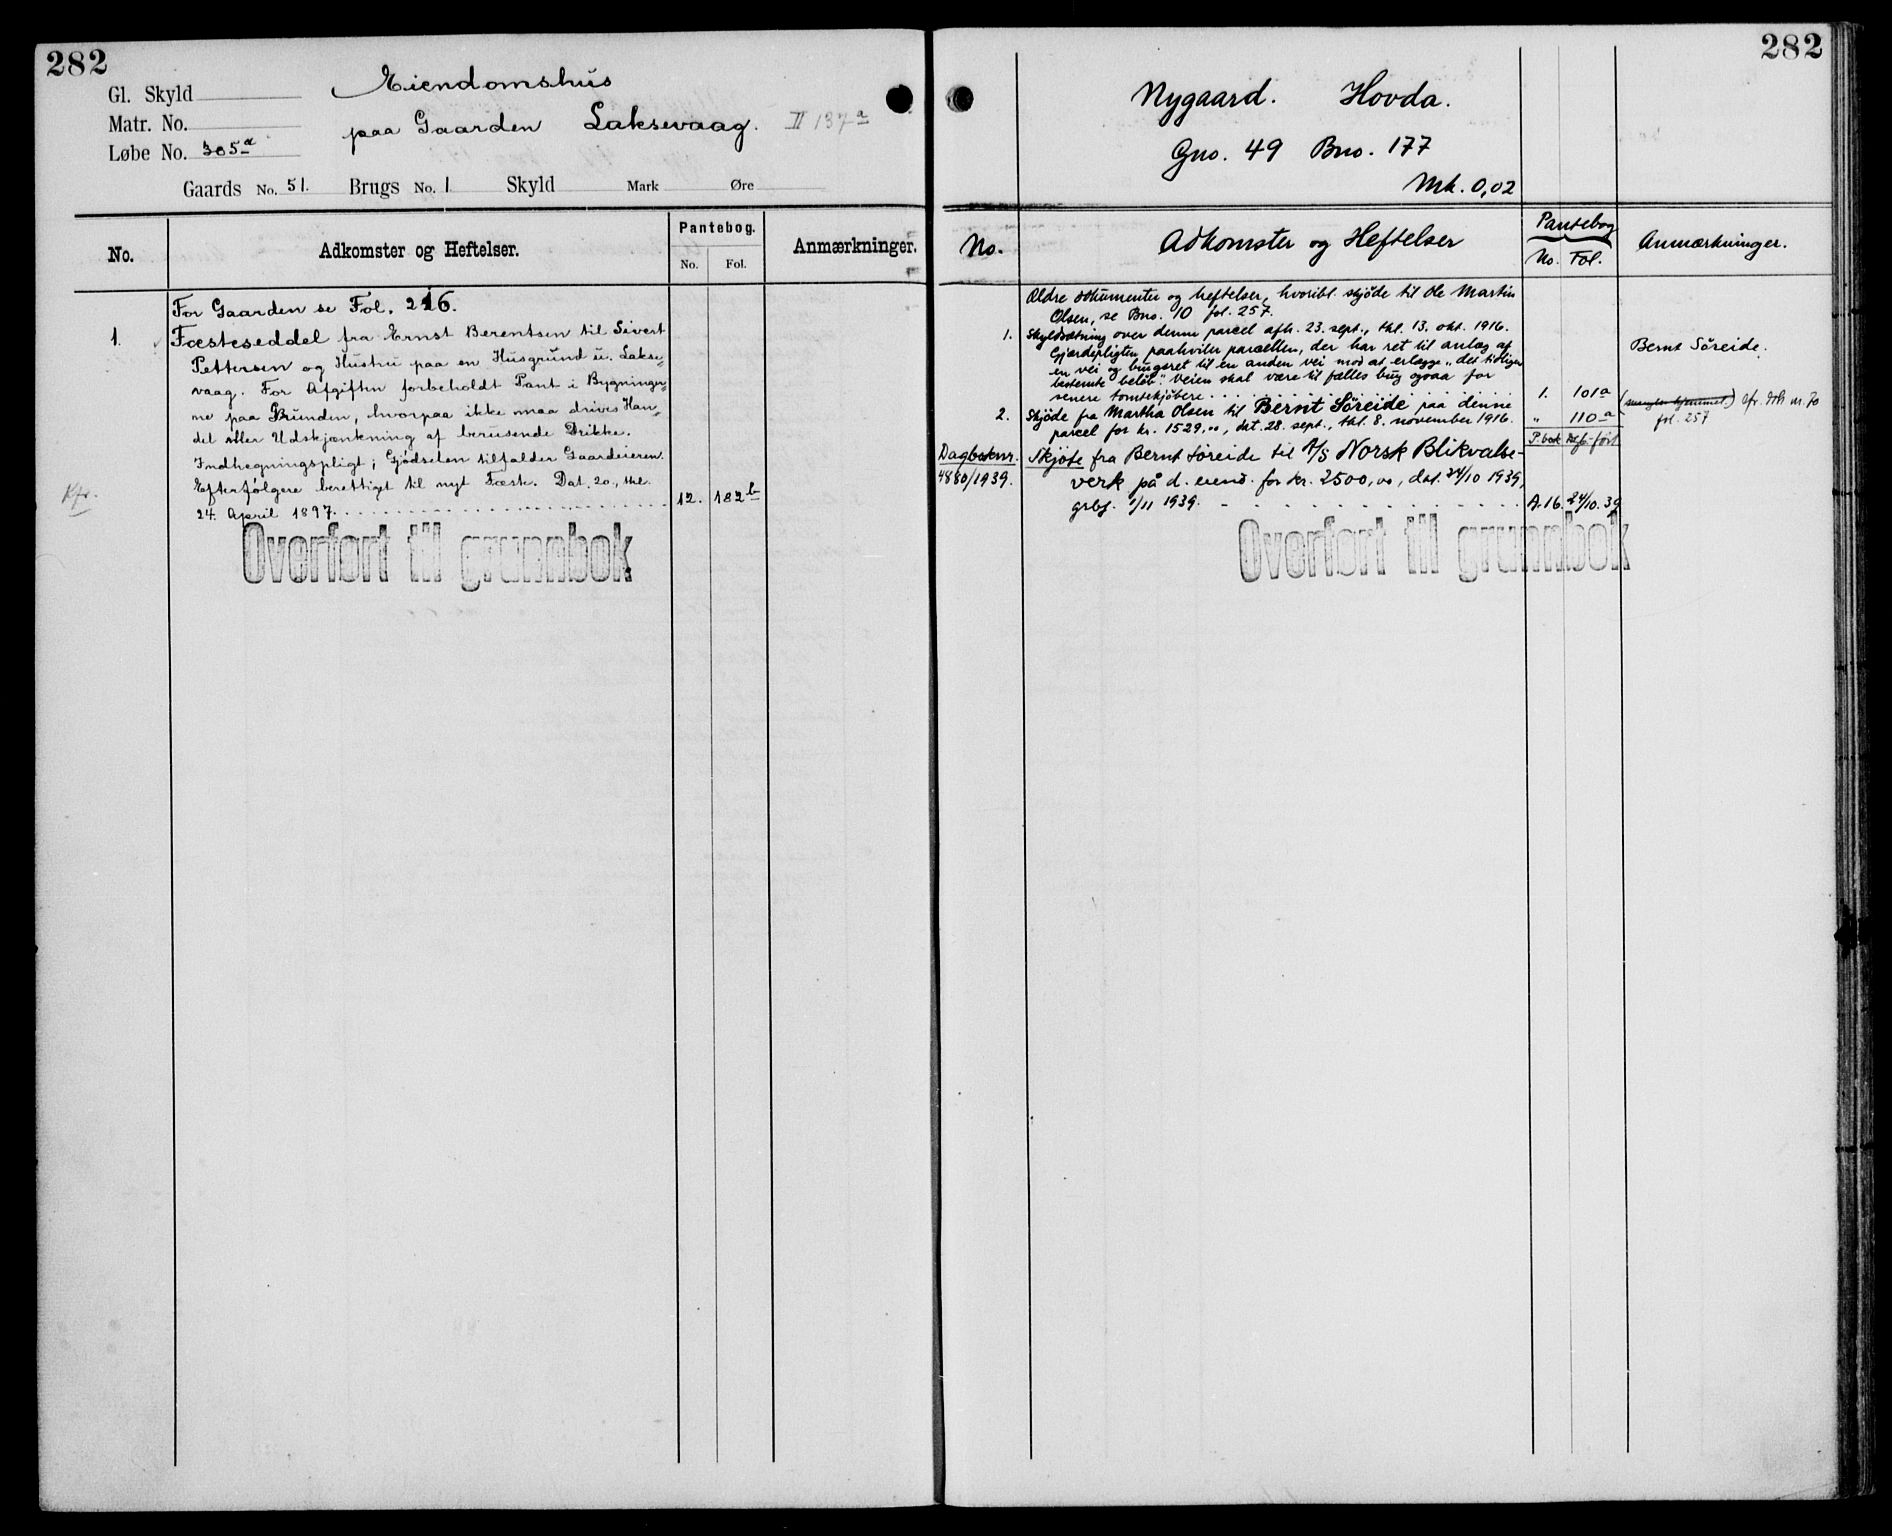 282
Gl. Skyld
Matr. No.
Løbe No. 305a
Eiendomshus
paa Gaarden Laksevaag. II 137a
Gaards No. 51. Brugs No. 1 Skyld Mark Øre
No. Adkomster og Heftelser. Pantebog. No. Fol. Anmærkninger.
For Gaarden se Fol. 216.
1. Fæsteseddel fra Ernst Berentsen til Sivert
Pettersen og Hustru paa en Husgrund u. Lakse-
vaag. For Afgiften forbeholdt Pant i Bygninger-
ne paa Grunden, hvorpaa ikke maa drives Han-
del eller Udskjænkning af berusende Drikke.
Indhegningspligt; Gjødselen tilfalder Gaardeieren.
Efterfølgere berettiget til nyt Fæste. Dat. 20., thl.
24. April 1897. 12. 182b
Overført til grunnbok
282
Nygaard. Hovda.
Gno. 49 Bno. 177
Mk. 0,02
No. Adkomster og Heftelser Pantebog No. Fol. Anmærkninger.
Ældre dokumenter og heftelser, hvoribl. skjøde til Ole Martin
Olsen, se Bno. 10 fol. 257.
1. Skyldsætning over denne parcel afh. 23. sept., thl. 13. okt. 1916.
Gjærdepligten paahviler parcellen, der har ret til anlæg af
en vei og brugsret til en anden vei mod at erlægge "det
bestemte beløb". Veien skal være til fælles brug ogsaa for
senere tomtekjøbere. 1. 101a
Bernt Søreide.
2. Skjøde fra Martha Olsen til Bernt Søreide paa denne
parcel for kr. 1529,00, dat. 28. sept., thl. 8. november 1916. " 110a
fol. 257
Dagboknr. Skjøte fra Bernt Søreide til A/S Norsk Blikvalse-
4880/1939. verk på d. eiend. for kr. 2500,00, dat. 24/10 1939,
grbf. 1/11 1939. A. 16. 24/10. 39
Overført til grunnbok